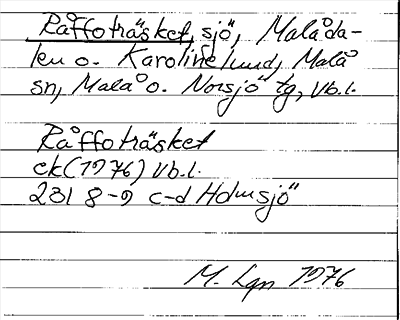 Råffoträsket, sjö, Malåda-
len o. Karolinelund, Malå
sn, Malå o. Norsjö tg, Vb.l.
Råffoträsket
ek (1976) Vb.l.
23I 8-9 c-d Holmsjö
M. Lgn 1976